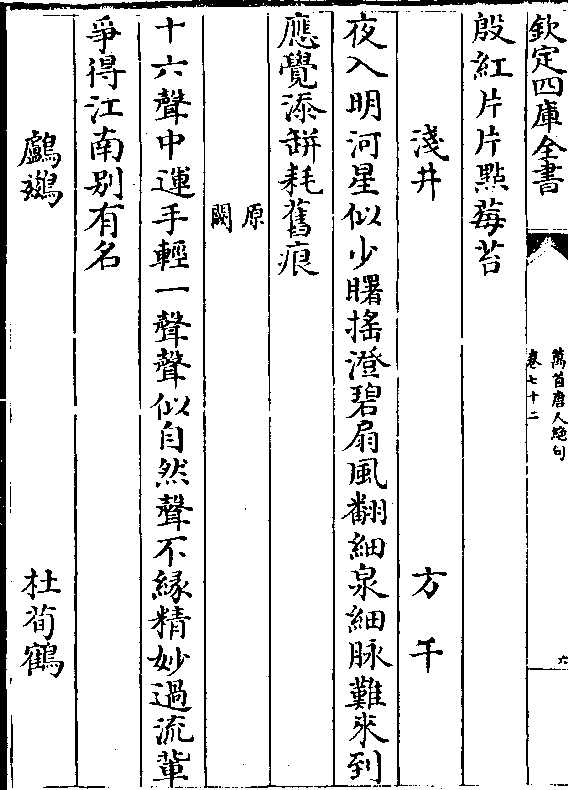 欽定四庫全書
萬首唐人絶句
卷七十二
六
殷紅片片點莓苔
淺井
方干
夜入明河星似少曙搖澄碧扇風翻細泉細脉難來到
應覺添缾耗舊痕
原
闕
十六聲中運手輕一聲聲似自然聲不緣精妙過流輩
爭得江南别有名
鸕鷀
杜荀鶴